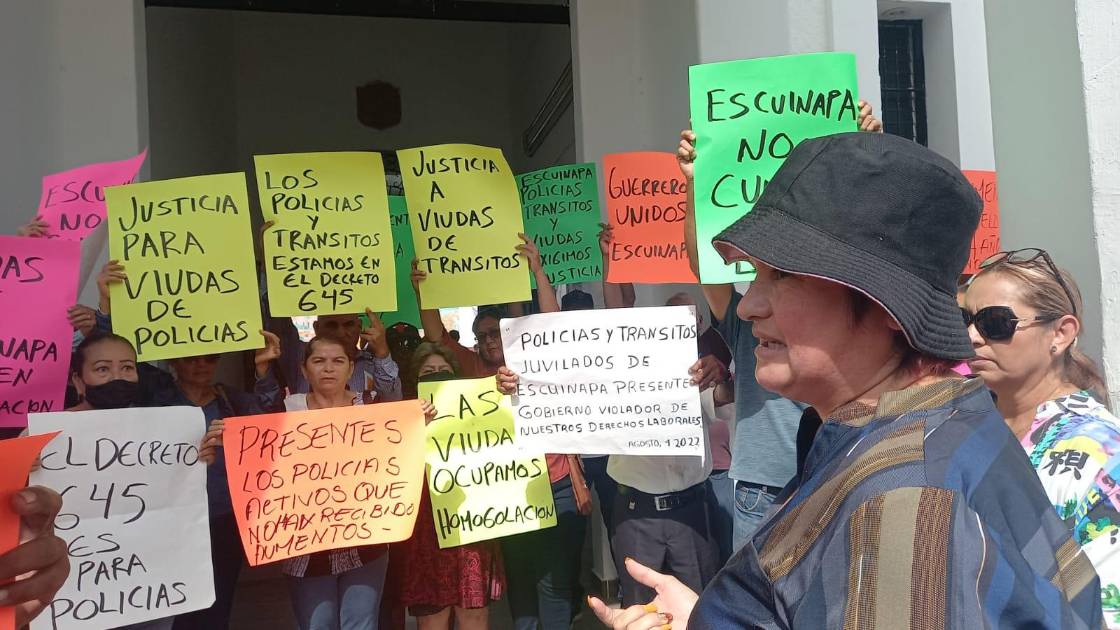 ESCUINAPA
NO
JUSTICIA
PARA
VIUDAS
DE
POLICIAS
LOS
POLICIAS
Y
TRANSITOS
ESTAMOS EN
EL DECRETO
645
JUSTICIA
A
VIUDAS
DE
TRANSITOS
ESCUINAPA
POLICIAS
TRANSITOS
Y
VIUDAS
EXIGIMOS
JUSTICIA
GUERREROS
UNIDOS
ESCUINAPA
ESCUINAPA
NO
EN
EL DECRETO
645
ES
PARA
POLICIAS
PRESENTES
LOS POLICIAS
ACTIVOS QUE
NO HAN RECIBIDO
AUMENTOS -
LAS
VIUDA
OCUPAMOS
HOMOGOLACION
POLICIAS Y TRANSITOS
JUVILADOS DE
ESCUINAPA PRESENTE
GOBIERNO VIOLADOR DE
NUESTROS DERECHOS LABORALES
AGOSTO, 1 2022